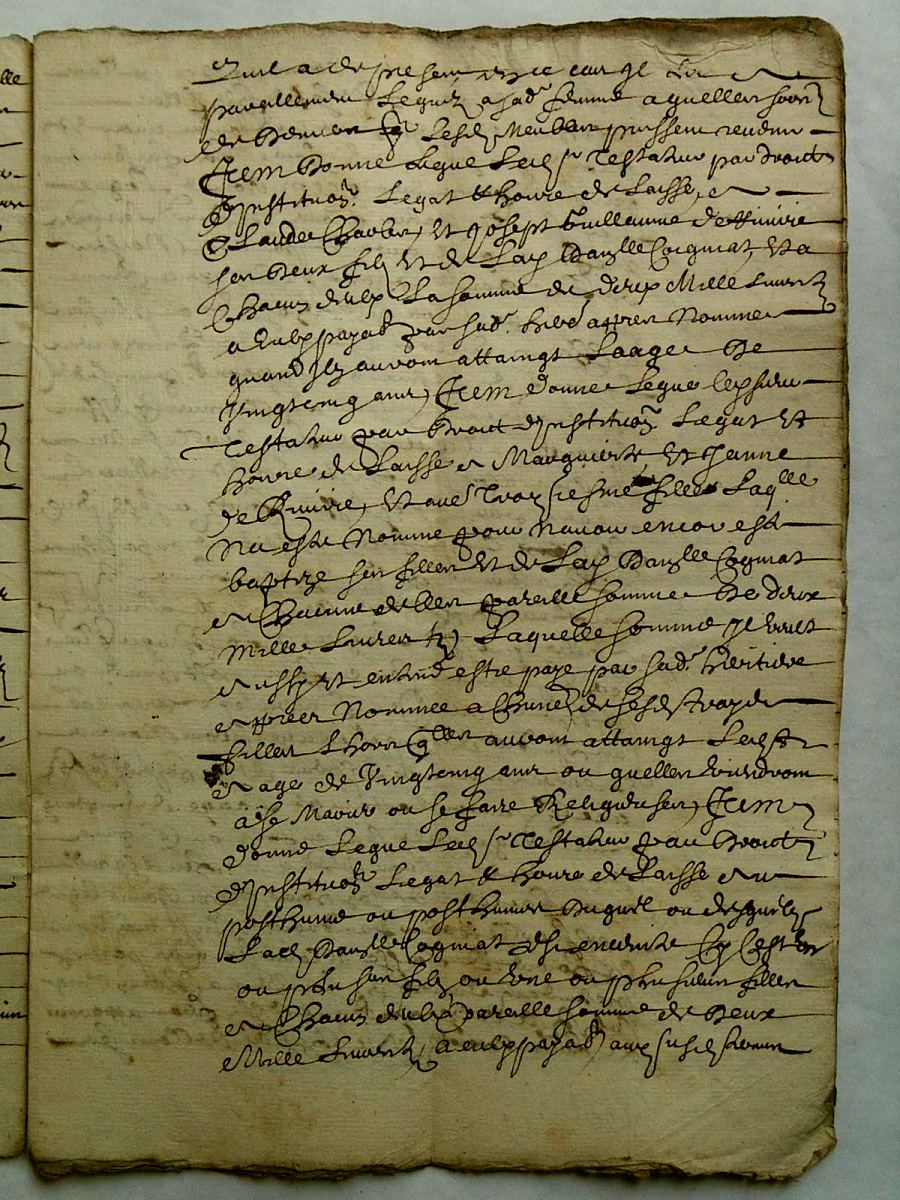 quil a de present et ce car il
pareillement legue a sad. femme aquelles soit
de Lesd. Meubles puissent
Item Donne Legue Led. sr Testateur par droict
dInstituon. Legat & hoirie de Laisse a
Claude Charles, et Joseph Guillaume de Riviere
ses Deux filz et de Lad. Damlle Cogniat, et a
Chacun deulx La somme de deux Mille Livres
a Eulx payable par sad. herit. apprez Nommee
quand Ilz auront attaingt Laage De
Vingtcinq ans, Item donne Legue le susd.
Testateur par Droict dInstituon. Legat et
hoirie de Laisse a Marguerite et Janne
de Riviere, et a une Troysiesme fille Laqlle
Na este Nomme pour Navoir encor este
baptize ses filles et de Lad. Damlle Cogniat
a Chacune delles pareille somme De deux
Mille Livres tz Laquelle somme Il veult
aussy et entend estre paye par sad. heritiere
apprez Nommee a Chune. de sesd. troys
filles Lhors qlles auront attaingt Led.
aage de Vingtcinq ans ou quelles viendront
a se Marier ou se faire Religieuses, Item
donne Legue Led. sr Testateur par Droict
dInstituon. Legat & hoirie de Laisse au
posthume ou posthumes Duquel ou desquelz
Lad. Damlle Cogniat est enceinte Sy Cest un
ou plusieurs filz ou Une ou plusieurs filles
a Chacun deulx pareille somme de Deux
Mille Livres, a eulx payab. aux susd.